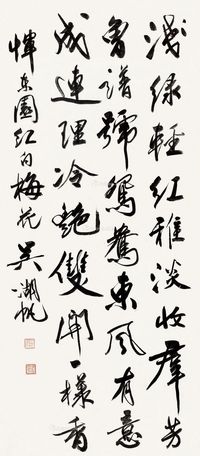 浅绿轻红雅淡妆群芳
曾谱号鸳鸯东风有意
成连理冷艳双开一样香
恽东园红白梅花吴湖帆